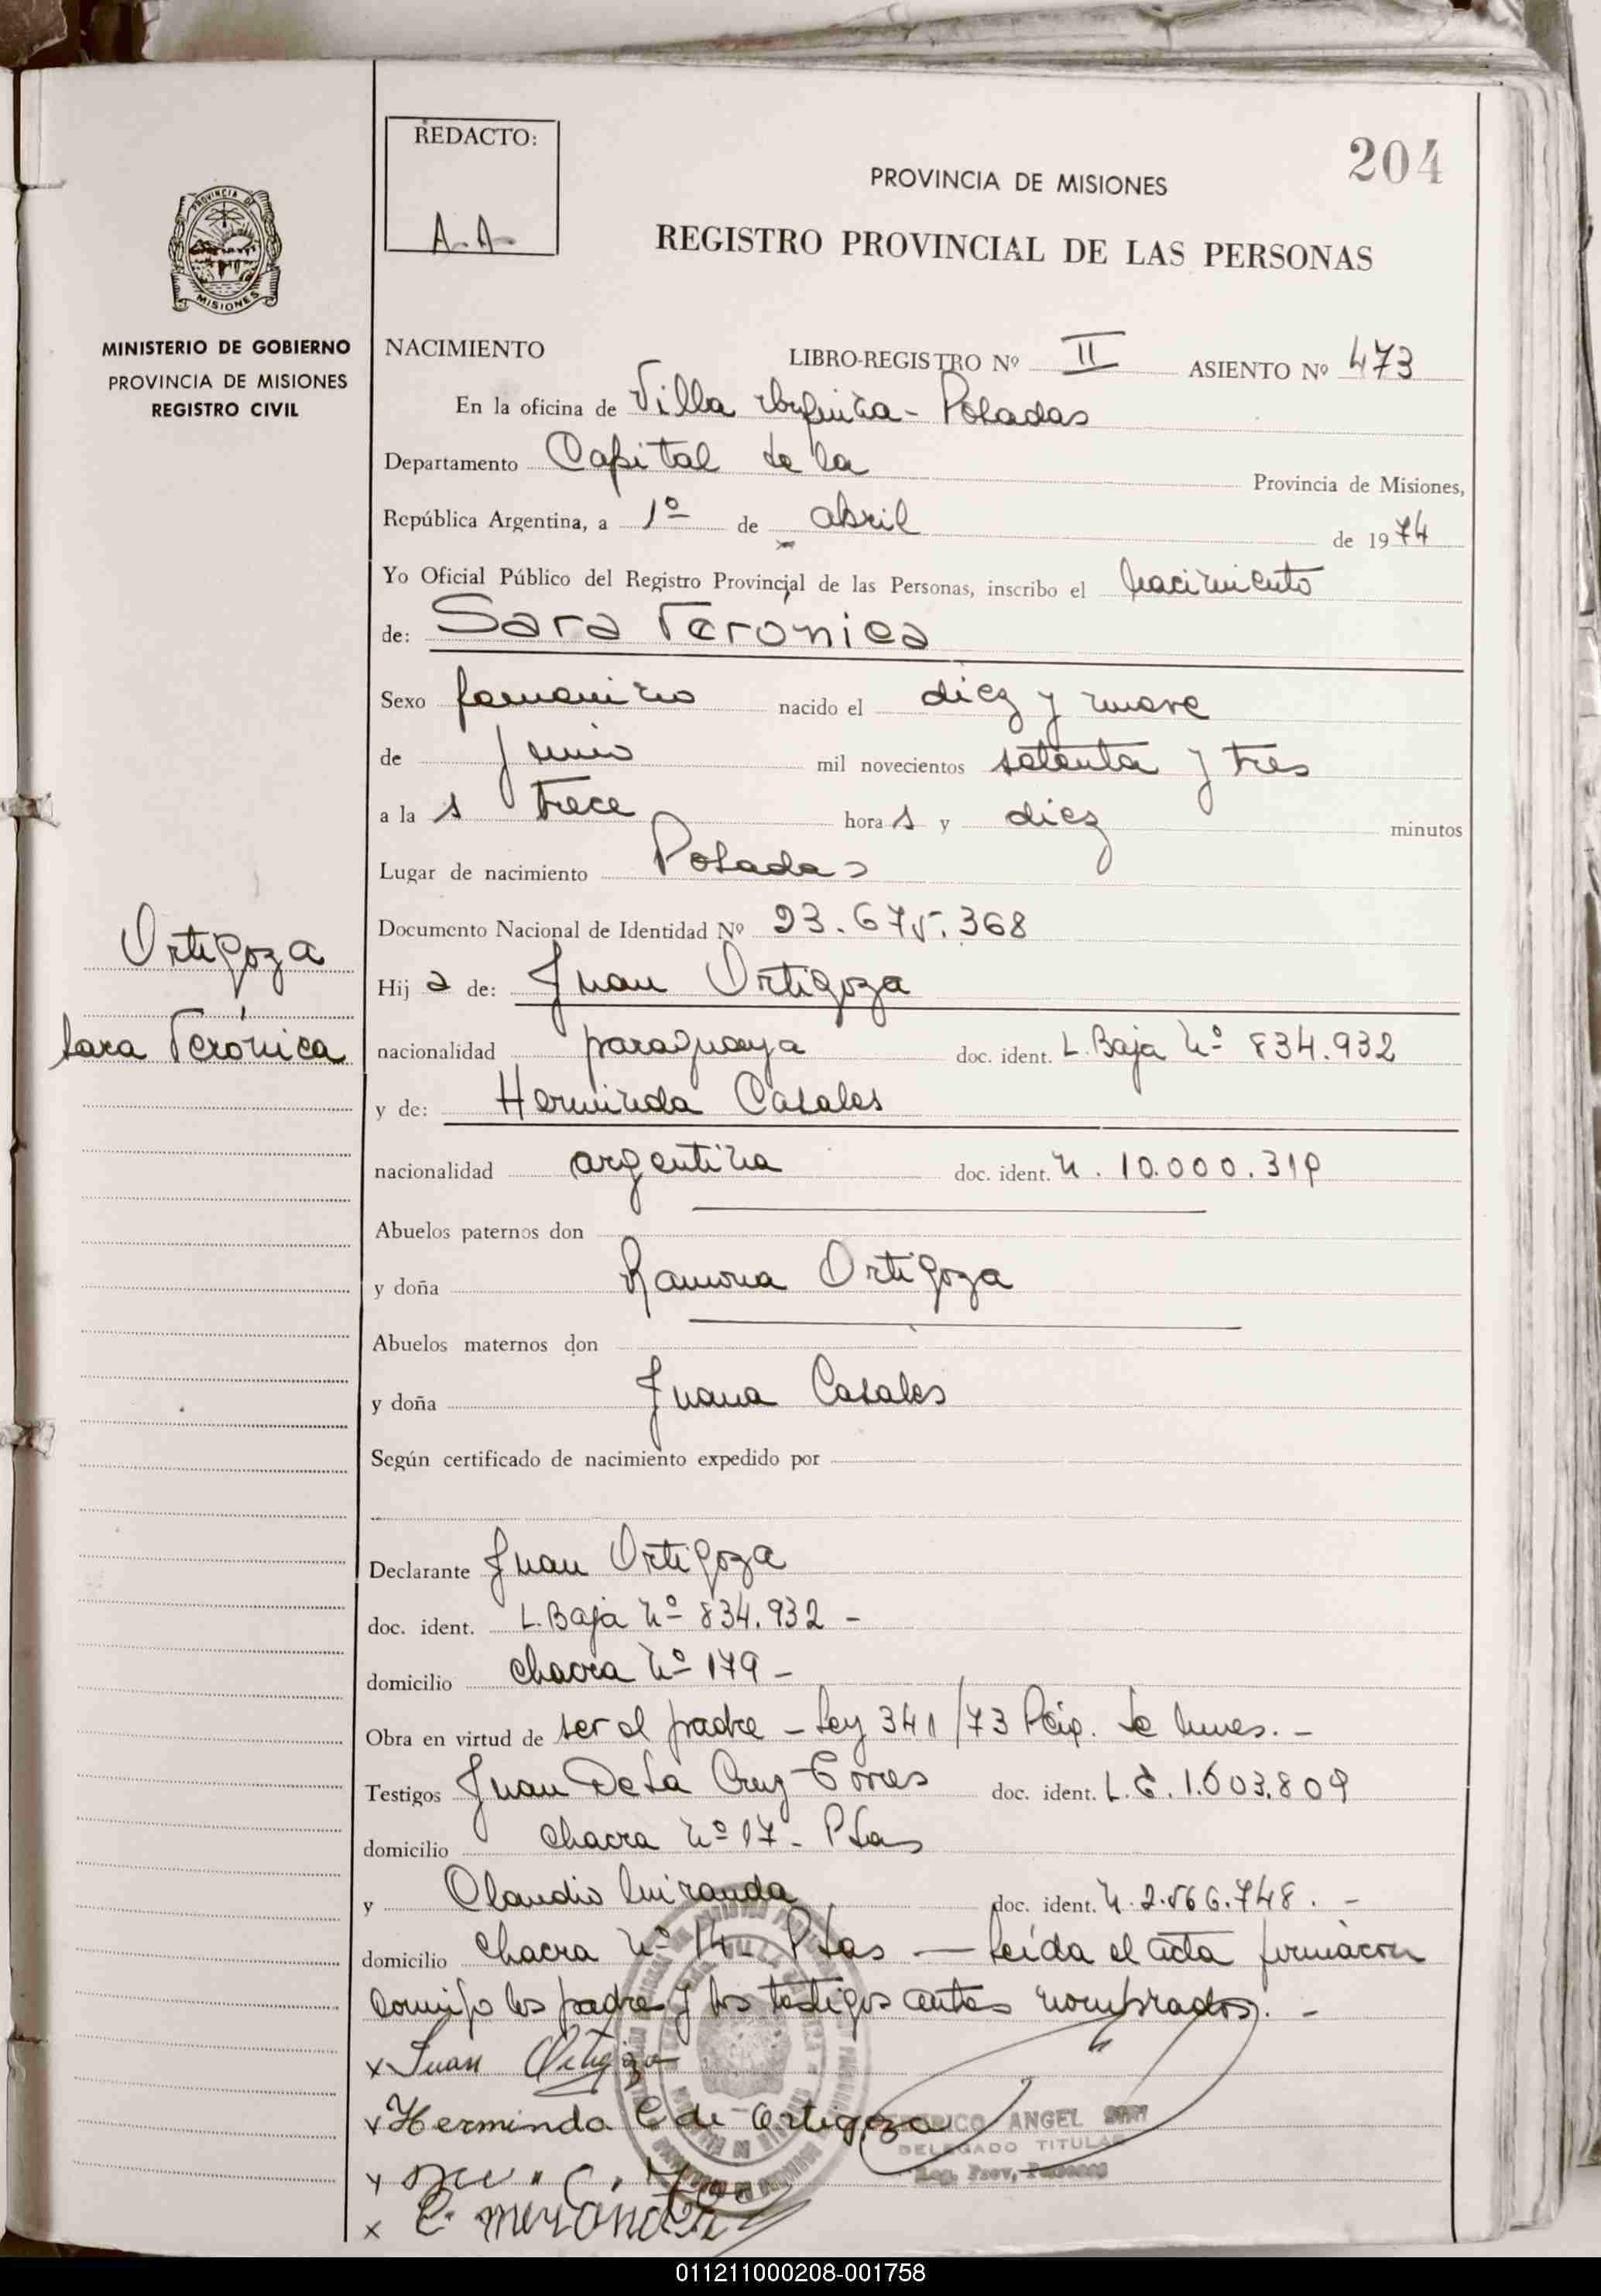 REDACTO:
A-A-
204
PROVINCIA DE MISIONES
REGISTRO PROVINCIAL DE LAS PERSONAS
PROVINCIA DE
MISIONES
MINISTERIO DE GOBIERNO
PROVINCIA DE MISIONES
REGISTRO CIVIL
NACIMIENTO LIBRO-REGISTRO Nº II ASIENTO Nº 473
En la oficina de Villa Urquiza - Posadas
Departamento Capital de la Provincia de Misiones,
República Argentina, a 1º de abril de 1974
Yo Oficial Público del Registro Provincial de las Personas, inscribo el nacimiento
de: Sara Verónica
Sexo femenino nacido el diez y nueve
de junio mil novecientos setenta y tres
a la s trece hora s y diez minutos
Lugar de nacimiento Posadas
Documento Nacional de Identidad Nº 23.675.368
Ortigoza
Sara Verónica
Hij a de: Juan Ortigoza
nacionalidad paraguaya doc. ident. L. Baja Nº 834.932
y de: Herminda Casales
nacionalidad argentina doc. ident. N. 10.000.319
Abuelos paternos don
y doña Ramona Ortigoza
Abuelos maternos don
y doña Juana Casales
Según certificado de nacimiento expedido por
Declarante Juan Ortigoza
doc. ident. L. Baja Nº 834.932 -
domicilio chacra Nº 179 -
Obra en virtud de ser el padre - Ley 341/73 de
Testigos Juan De La Cruz Torres doc. ident. L.E. 1.603.809
domicilio chacra Nº 17 - Psas
y Claudio Miranda doc. ident. N. 2.566.748. -
domicilio chacra Nº 14 - Psas — Leída el acta firmaron
conmigo los padres y los testigos antes nombrados. -
x Juan Ortigoza
x Herminda C de Ortigoza
ANGEL
DELEGADO TITULAR
x
x C. Miranda
011211000208-001758